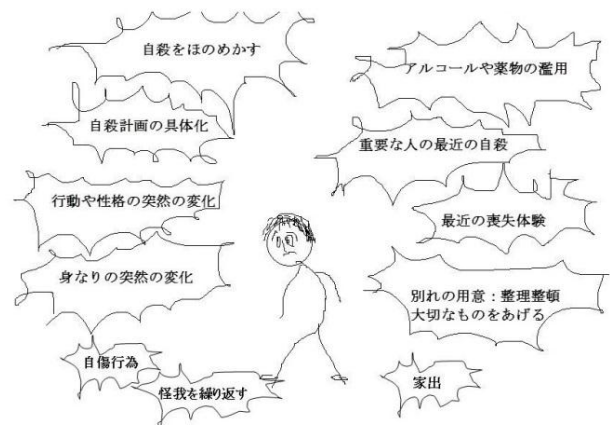 自殺をほのめかす
自殺計画の具体化
行動や性格の突然の変化
身なりの突然の変化
自傷行為
怪我を繰り返す
アルコールや薬物の濫用
重要な人の最近の自殺
最近の喪失体験
別れの用意：整理整頓
大切なものをあげる
家出